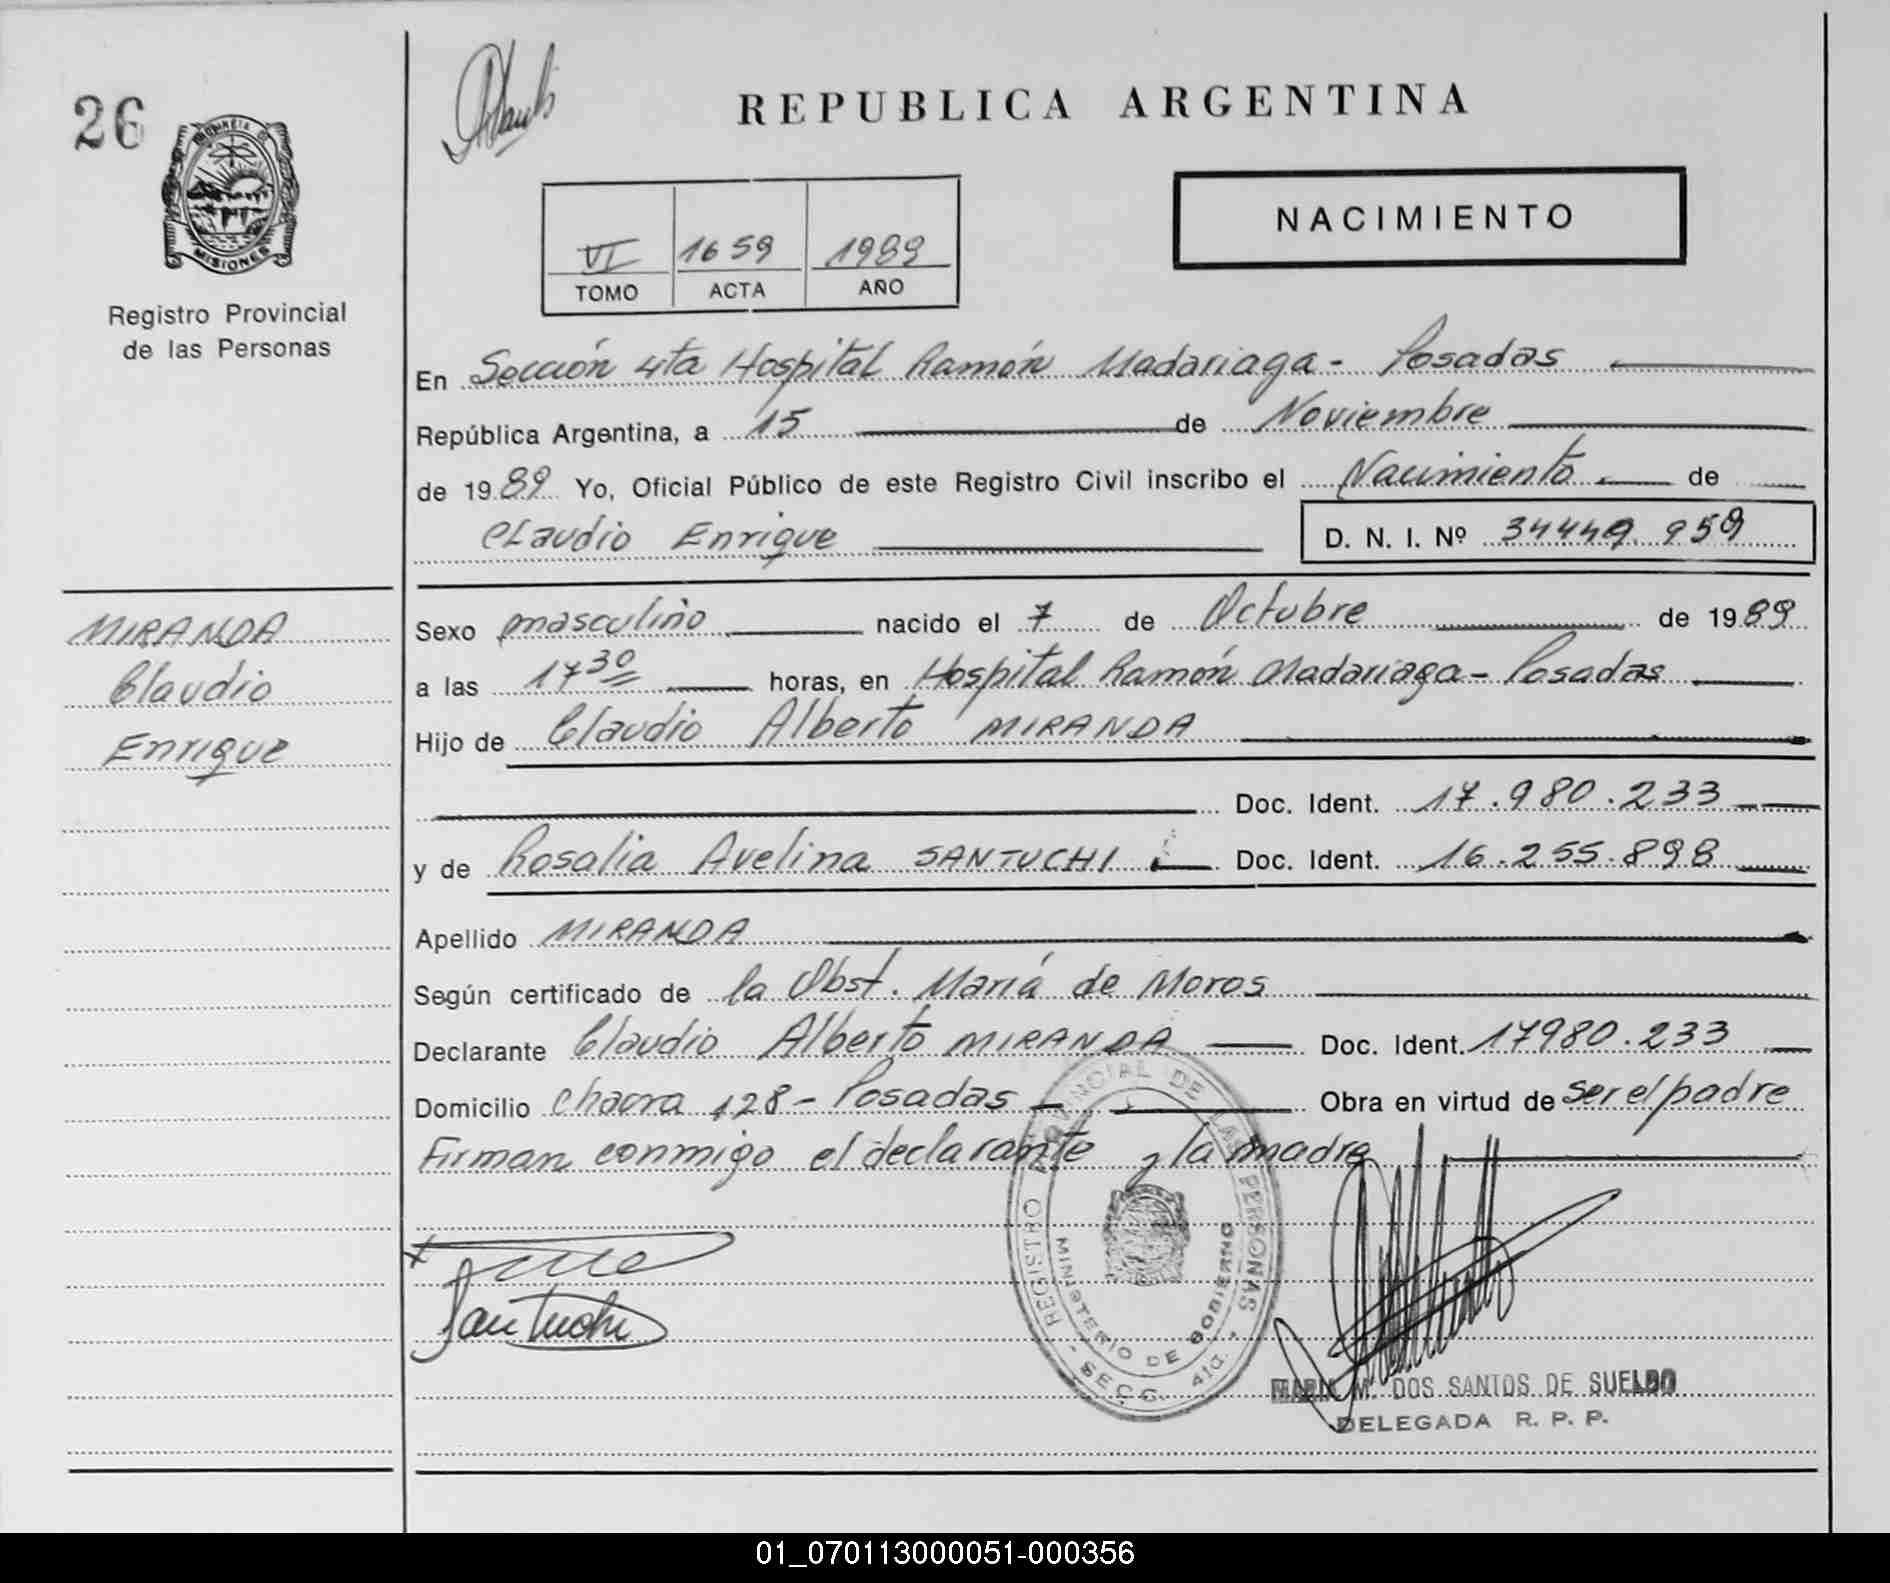 26
PROVINCIA DE
MISIONES
Registro Provincial
de las Personas
REPUBLICA ARGENTINA
NACIMIENTO
VI 1659 1989
TOMO ACTA AÑO
En Sección 4ta Hospital Ramón Madariaga - Posadas
República Argentina, a 15 de Noviembre
de 1989 Yo, Oficial Público de este Registro Civil inscribo el Nacimiento de
Claudio Enrique D. N. I. Nº 34449 959
MIRANDA
Claudio
Enrique
Sexo masculino nacido el 7 de Octubre de 1989
a las 17 30 horas, en Hospital Ramón Madariaga - Posadas
Hijo de Claudio Alberto MIRANDA
Doc. Ident. 17.980.233
y de Rosalia Avelina SANTUCHI Doc. Ident. 16.255.898
Apellido MIRANDA
Según certificado de la Obst. María de Moros
Declarante Claudio Alberto MIRANDA Doc. Ident. 17980.233
Domicilio Chacra 128 - Posadas Obra en virtud de ser el padre
Firman conmigo el declarante y la madre
REGISTRO PROVINCIAL DE LAS PERSONAS
MINISTERIO DE GOBIERNO
- SECC. 4ta. -
Santuchi
MARIA M. DOS SANTOS DE SUELDO
DELEGADA R. P. P.
01_070113000051-000356